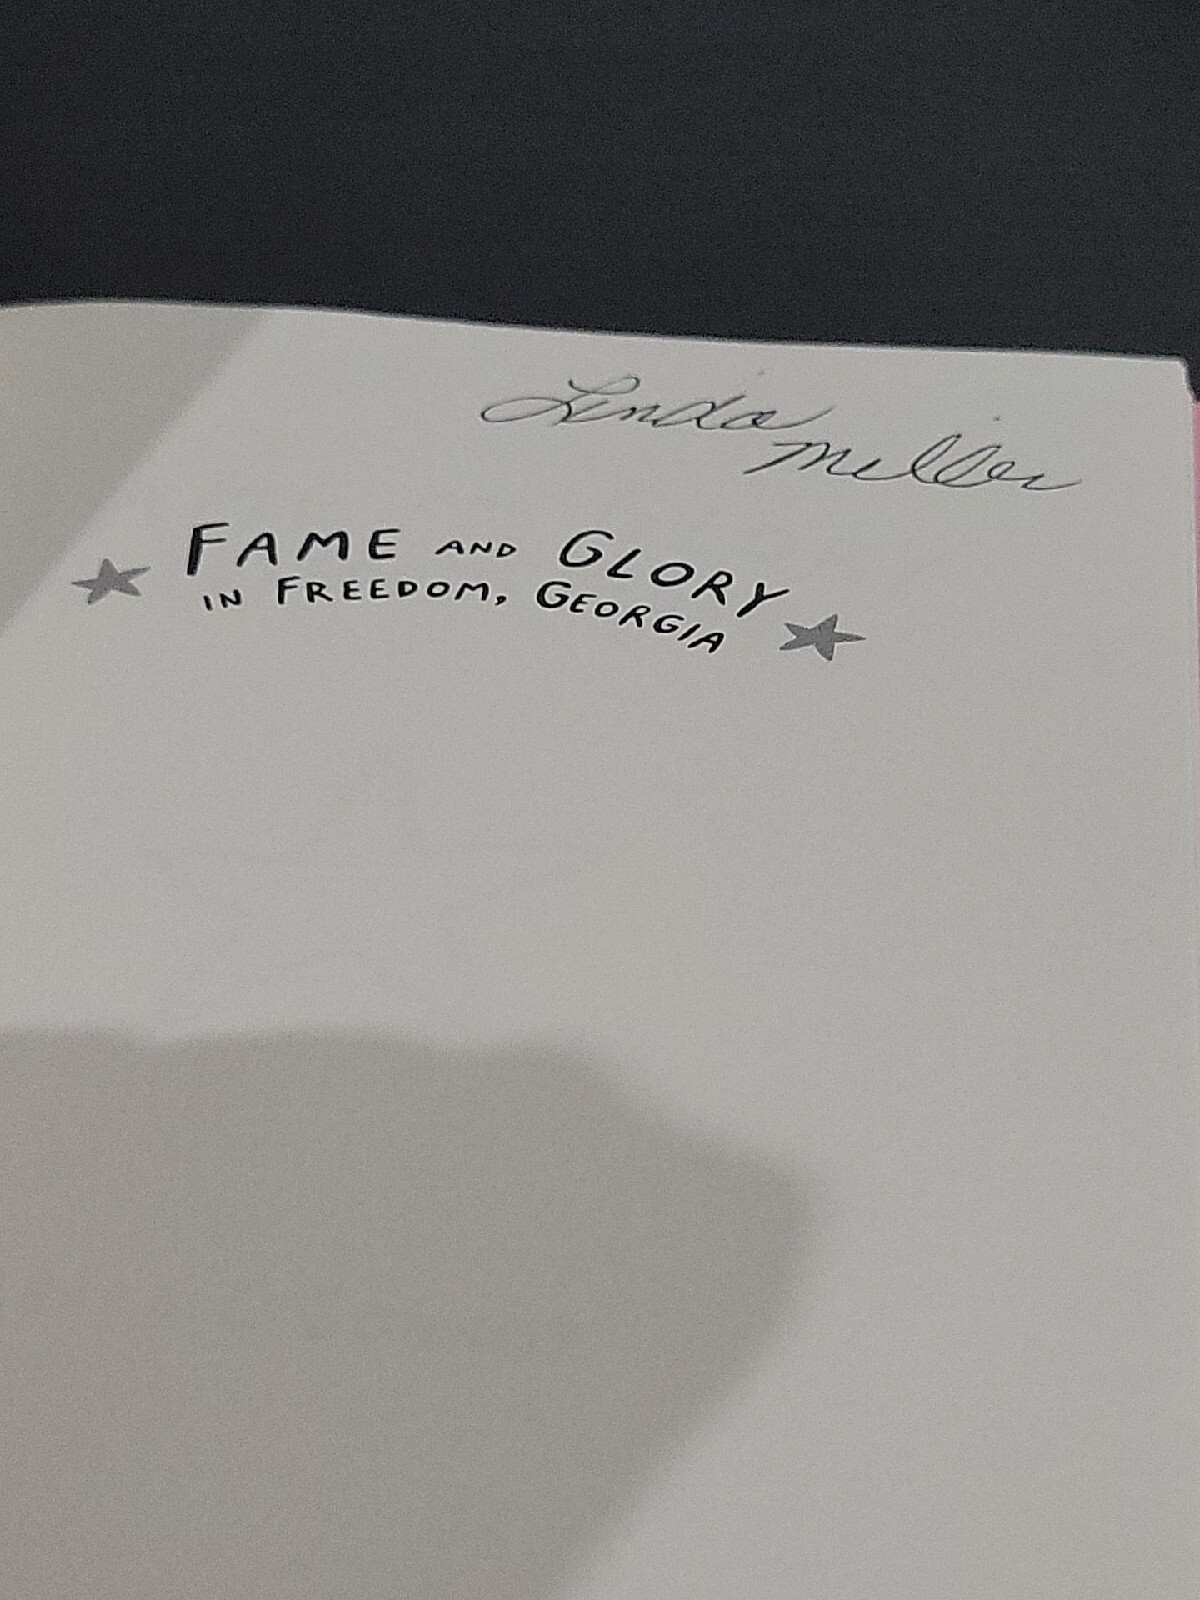 Linda
Miller
FAME AND GLORY
IN FREEDOM, GEORGIA